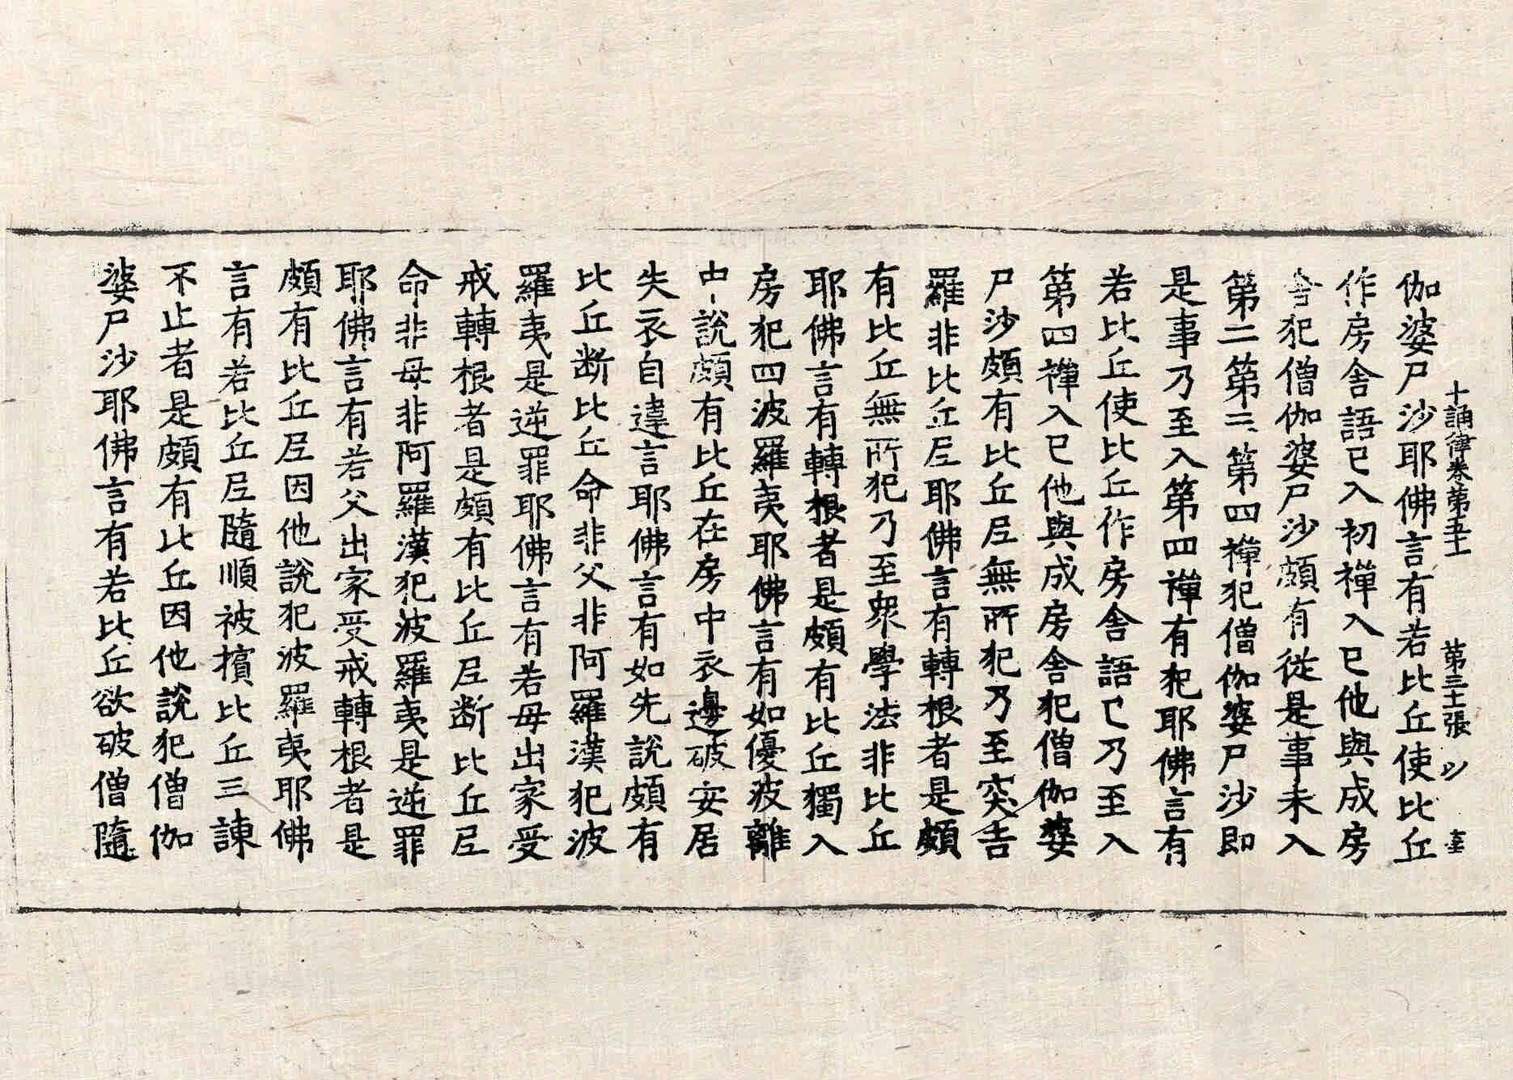 十誦律卷第五十 第三十張
伽婆尸沙耶佛言有若比丘使比丘
作房舍語已入初禪入已他與成房
舍犯僧伽婆尸沙頗有從是事未入
第二第三第四禪犯僧伽婆尸沙即
是事乃至入第四禪有犯耶佛言有
若比丘使比丘作房舍語已乃至入
第四禪入已他與成房舍犯僧伽婆
尸沙頗有比丘尼無所犯乃至突吉
羅非比丘尼耶佛言有轉根者是頗
有比丘無所犯乃至衆學法非比丘
耶佛言有轉根者是頗有比丘獨入
房犯四波羅夷耶佛言有如優波離
中說頗有比丘在房中衣邊破安居
失衣自違言耶佛言有如先說頗有
比丘断比丘命非父非阿羅漢犯波
羅夷是逆罪耶佛言有若母出家受
戒轉根者是頗有比丘尼断比丘尼
命非母非阿羅漢犯波羅夷是逆罪
耶佛言有若父出家受戒轉根者是
頗有比丘尼因他說犯波羅夷耶佛
言有若比丘尼隨順被擯比丘三諫
不止者是頗有比丘因他說犯僧伽
婆尸沙耶佛言有若比丘欲破僧隨